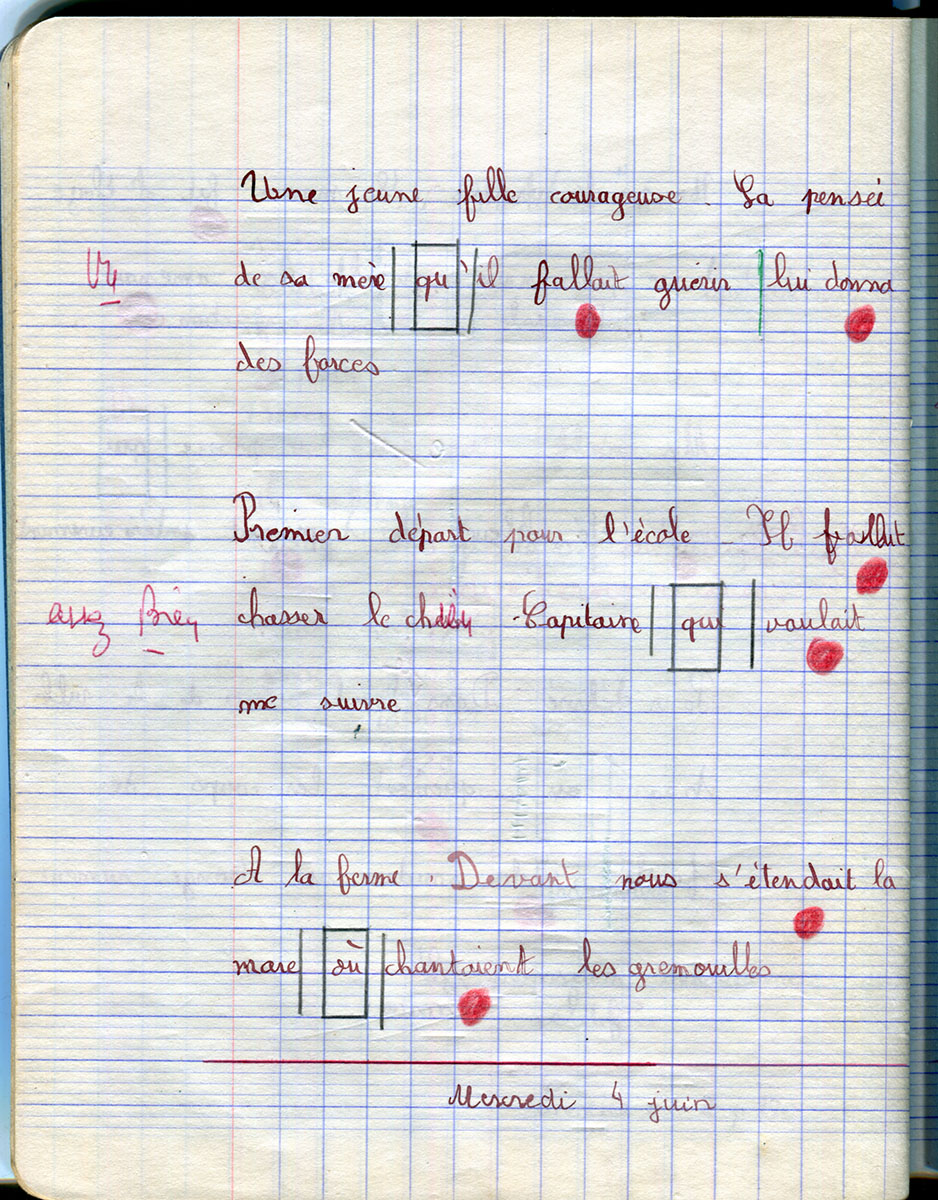 Une jeune fille courageuse. La pensée
Vu de sa mère qu'il fallait guérir lui donna
des forces
Premier départ pour l'école _ Il fallut
assez Bien chasser le chien Capitaine qui voulait
me suivre
A la ferme. Devant nous s'étendait la
mare où chantaient les grenouilles
Mercredi 4 juin